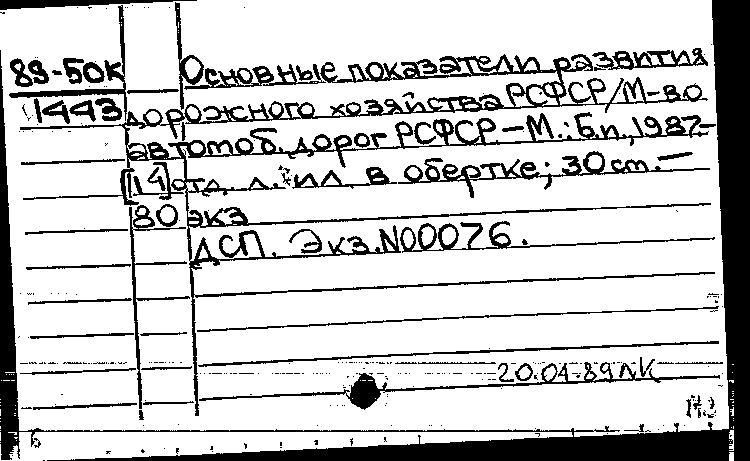 89-50К Основные показатели развития
1443 дорожного хозяйства РСФСР/М-во
автомоб. дорог РСФСР.-М.: Б.и., 1987.-
[14] отд. л. ил. в обертке; 30 см.-
80 экз
ДСП. Экз. N00076.
20.04.89 ЛК
6